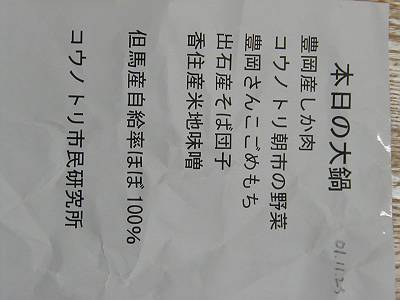 本日の大鍋
豊岡産しか肉
コウノトリ朝市の野菜
豊岡さんこごめもち
出石産そば団子
香住産米地味噌
但馬産自給率ほぼ100%
コウノトリ市民研究所
01.11.25